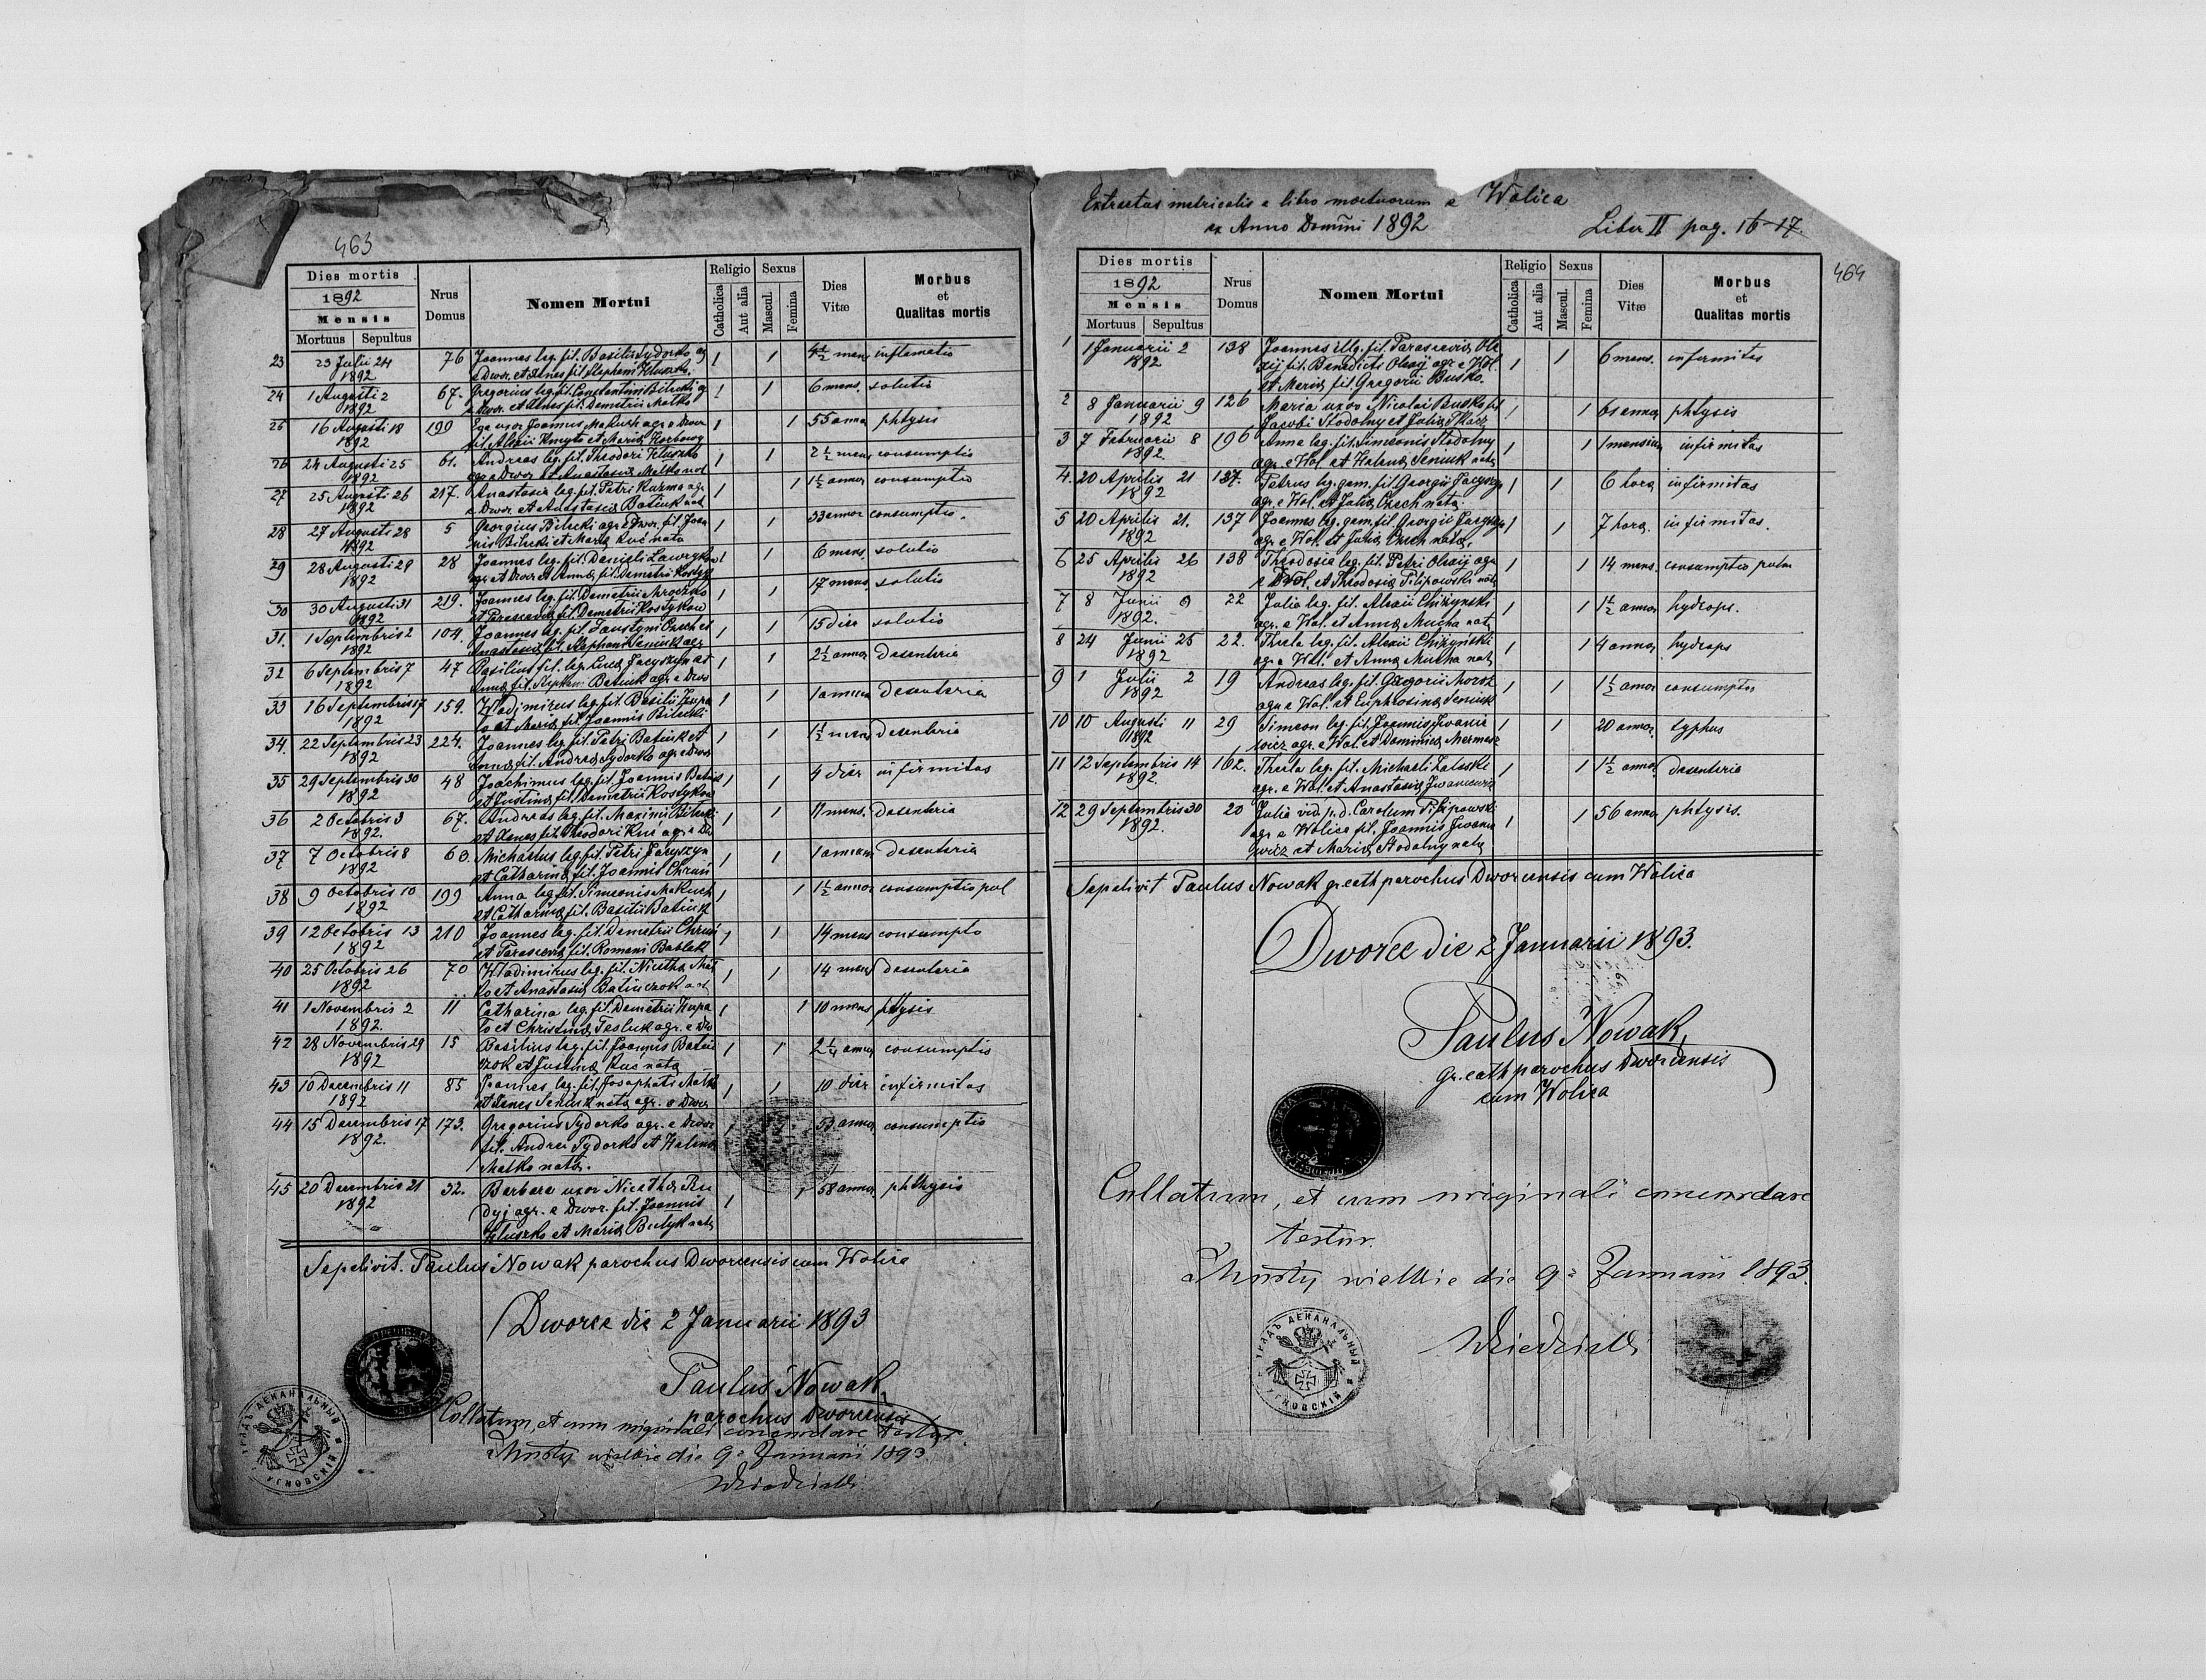 463
Dies mortis
1892
Mensis
Mortuus Sepultus
Nrus Domus
Nomen Mortui
Religio
Catholica
Aut alia
Sexus
Mascul.
Femina
Dies Vitæ
Morbus et Qualitas mortis
23 23 Julii 24 76 Joannes leg. fil. Basilii Sydorko agr 1 1 4½ mens inflamatio
1892 e Dwor. et Agnes fil. Stephani Hluszko.
24 1 Augusti 2 67. Gregorius leg. fil. Constantini Bilecki 1 1 6 mens. solutio
1892 e Dwor. et Agnes fil. Demetrii Matko
25 16 Augusti 18 199 Eva uxor Joannis Makuch agr. e Dwor 1 1 55 annor phtysis
1892 fil. Alexii Kmyta et Maria
26 24 Augusti 25 61. Andreas leg. fil. Theodori Hluszko 1 1 2½ mens consumptio
1892 agr. e Dwor et Anastasia Matko nat
27 25 Augusti 26 217. Anastasia leg. fil. Petri Kuzma agr. 1 1 1½ annor consumptio
1892 e Dwor. et Anastasia Batiuk nat
28 27 Augusti 28 5 Georgius Bilecki agr. e Dwor. fil. Joan 1 1 33 annor consumptio.
1892 nis Bilecki et Maria Kuć nata
29 28 Augusti 29 28 Joannes leg. fil. Danieli Lawrykow 1 1 6 mens. solutio
1892 agr. et Dwor et Anna fil. Demetrii Kostykow
30 30 Augusti 31 219. Joannes leg. fil. Demetrii Mroczko 1 1 17 mens. solutio
1892 et Parascevia fil. Demetrii Kostykow
31. 1 Septembris 2 104. Joannes leg. fil. Faustyni Onsch et 1 1 15 dier solutio
1892 Anastasia fil. Stephani Seniuk agr.
32 6 Septembris 7 47 Basilius fil. leg. Luca Jacyszyn et 1 1 2½ annor Desenteria
1892 Anna fil. Stephani Batiuk agr. e Dwor
33 16 Septembris 17 159. Wladimirus leg. fil. Basilii Czupa 1 1 1 annum desenteria
1892 lo et Maria fil. Joannis Bilecki
34. 22 Septembris 23 224. Joannes leg. fil. Petri Batiuk et 1 1 1½ mens desenteria
1892 Anna fil. Andrea Sydorko agr. e Dwor
35 29 Septembris 30 48 Joachimus leg. fil. Joannis Batiuk 1 1 4 dier infirmitas
1892 et Justina fil. Demetrii Kostykow
36 2 Octobris 3 67. Andreas leg. fil. Maximi Bilecki 1 1 11 mens. desenteria
1892. et Agnes fil. Theodori Kuc agr. e Dw
37 7 Octobris 8 60. Michaelus leg. fil. Petri Jacyszyn 1 1 1 annum desenteria
1892 et Catharina fil. Joannis Chruń
38 9 Octobris 10 199 Anna leg. fil. Simeonis Makuch 1 1 1½ annor consumptio pul
1892 et Catharina fil. Basilii Batiuk
39 12 Octobris 13 210 Joannes leg. fil. Demetrii Chruń 1 1 14 mens consumpto
1892 et Parascevia fil. Romani Bablak
40 25 Octobris 26 70 Wladimirus leg. fil. Nicetha Mat 1 1 14 mens desenteria
1892 ko et Anastasia Batiuczok nat
41 1 Novembris 2 11 Catharina leg. fil. Demetrii Czupa 1 1 10 mens phtysis
1892. lo et Christina Tesluk agr. e Dw
42 28 Novembris 29 15 Basilius leg. fil. Joannis Batiu 1 1 2¼ annor consumptio
1892 czok et Justina Kuć nata
43 10 Decembris 11 85 Joannes leg. fil. Josaphati Matko 1 1 10 dier infirmitas
1892 et Agnes Seniuk nata agr. e Dwor
44 15 Decembris 17 173. Gregorius Sydorko agr. e Dwor 1 53 annor consumptio
1892. fil. Andrea Sydorko et Helena
Matko nata.
45 20 Decembris 21 32. Barbara uxor Nicetha Ru 1 1 58 annor phthysis
1892 dyj agr. e Dwor. fil. Joannis
Hluszko et Maria Budyk nata
Sepelivit. Paulus Nowak parochus Dworcensis cum Wolica
Dworce die 2 Januarii 1893
Paulus Nowak
parochus Dworcensis
Collatum, et cum originali concordare testor.
Mosty wielkie die 9ª Januarii 1893
УРЯДЪ ДЕКАНАЛЬНЫЙ
УГНОВСКІЙ
Extractus metricalis e libro mortuorum e Wolica
ex Anno Domini 1892
Liber II pag. 16-17.
464
Dies mortis
1892
Mensis
Mortuus Sepultus
Nrus Domus
Nomen Mortui
Religio
Catholica
Aut alia
Sexus
Mascul.
Femina
Dies Vitæ
Morbus et Qualitas mortis
1 1 Januarii 2 138 Joannes illg. fil. Parascevia Ole 1 1 6 mens. infirmitas
1892 xij fil. Benedicti Olexij agr. e Wol.
et Maria fil. Gregorii Busko.
2 8 Januarii 9 126 Maria uxor Nicolai Busko fil 1 1 61 annor phtysis
1892 Jacobi Stodolny et Julia Tkacz
3 7 Februarii 8 196 Anna leg. fil. Simeonis Stodolny 1 1 1 mensium infirmitas
1892 agr. e Wol. et Helena Seniuk nata
4. 20 Aprilis 21 137. Petrus leg. gem. fil. Georgii Jacyszyn 1 1 6 hora infirmitas
1892 agr. e Wol. et Julia Onsch nata.
5 20 Aprilis 21. 137 Joannes leg. gem. fil. Georgii Jacyszyn 1 1 7 hora. infirmitas.
1892 agr. e Wol. et Julia Onsch nata.
6 25 Aprilis 26 138 Theodosia leg. fil. Petri Olexij agr. 1 1 14 mens. consumptio pulm
1892 e Wol. et Theodosia Pilipowski nata
7 8 Junii 9 22 Julia leg. fil. Alexii Chizynski 1 1 1½ annor hydrops.
1892. agr. e Wol. et Anna Mucha nata
8 24 Junii 25 22. Thecla leg. fil. Alexii Chizyński 1 1 4 annor hydrops
1892 agr. e Wol. et Anna Mucha nata
9 1 Julii 2 19 Andreas leg. fil. Gregorii Moroz 1 1 1½ annor consumptio
1892 agr. e Wol. et Euphrosina Seniuk
10 10 Augusti 11 29 Simeon leg. fil. Joannis Iwanie 1 1 20 annor typhus
1892 wicz agr. e Wol. et Dominica Mermesz
11 12 Septembris 14 162. Thecla leg. fil. Michaeli Zaleski 1 1 1½ annor desenteria
1892. agr. e Wol. et Anastasia Iwanewicz
12 29 Septembris 30 20 Julia vid. p. d. Carolum Pilipowski 1 1 56 annor phtysis.
1892. agr. e Wolica fil. Joannis Iwanie
wicz et Maria Stodolny nata
Sepelivit Paulus Nowak gr. cath parochus Dworcensis cum Wolica
Dworce die 2 Januarii 1893.
Paulus Nowak
gr. cath parochus Dworcensis
cum Wolica
Collatum, et cum originali concordare
testor.
Mosty wielkie die 9ª Januarii 1893.
УРЯДЪ ДЕКАНАЛЬНЫЙ
УГНОВСКІЙ